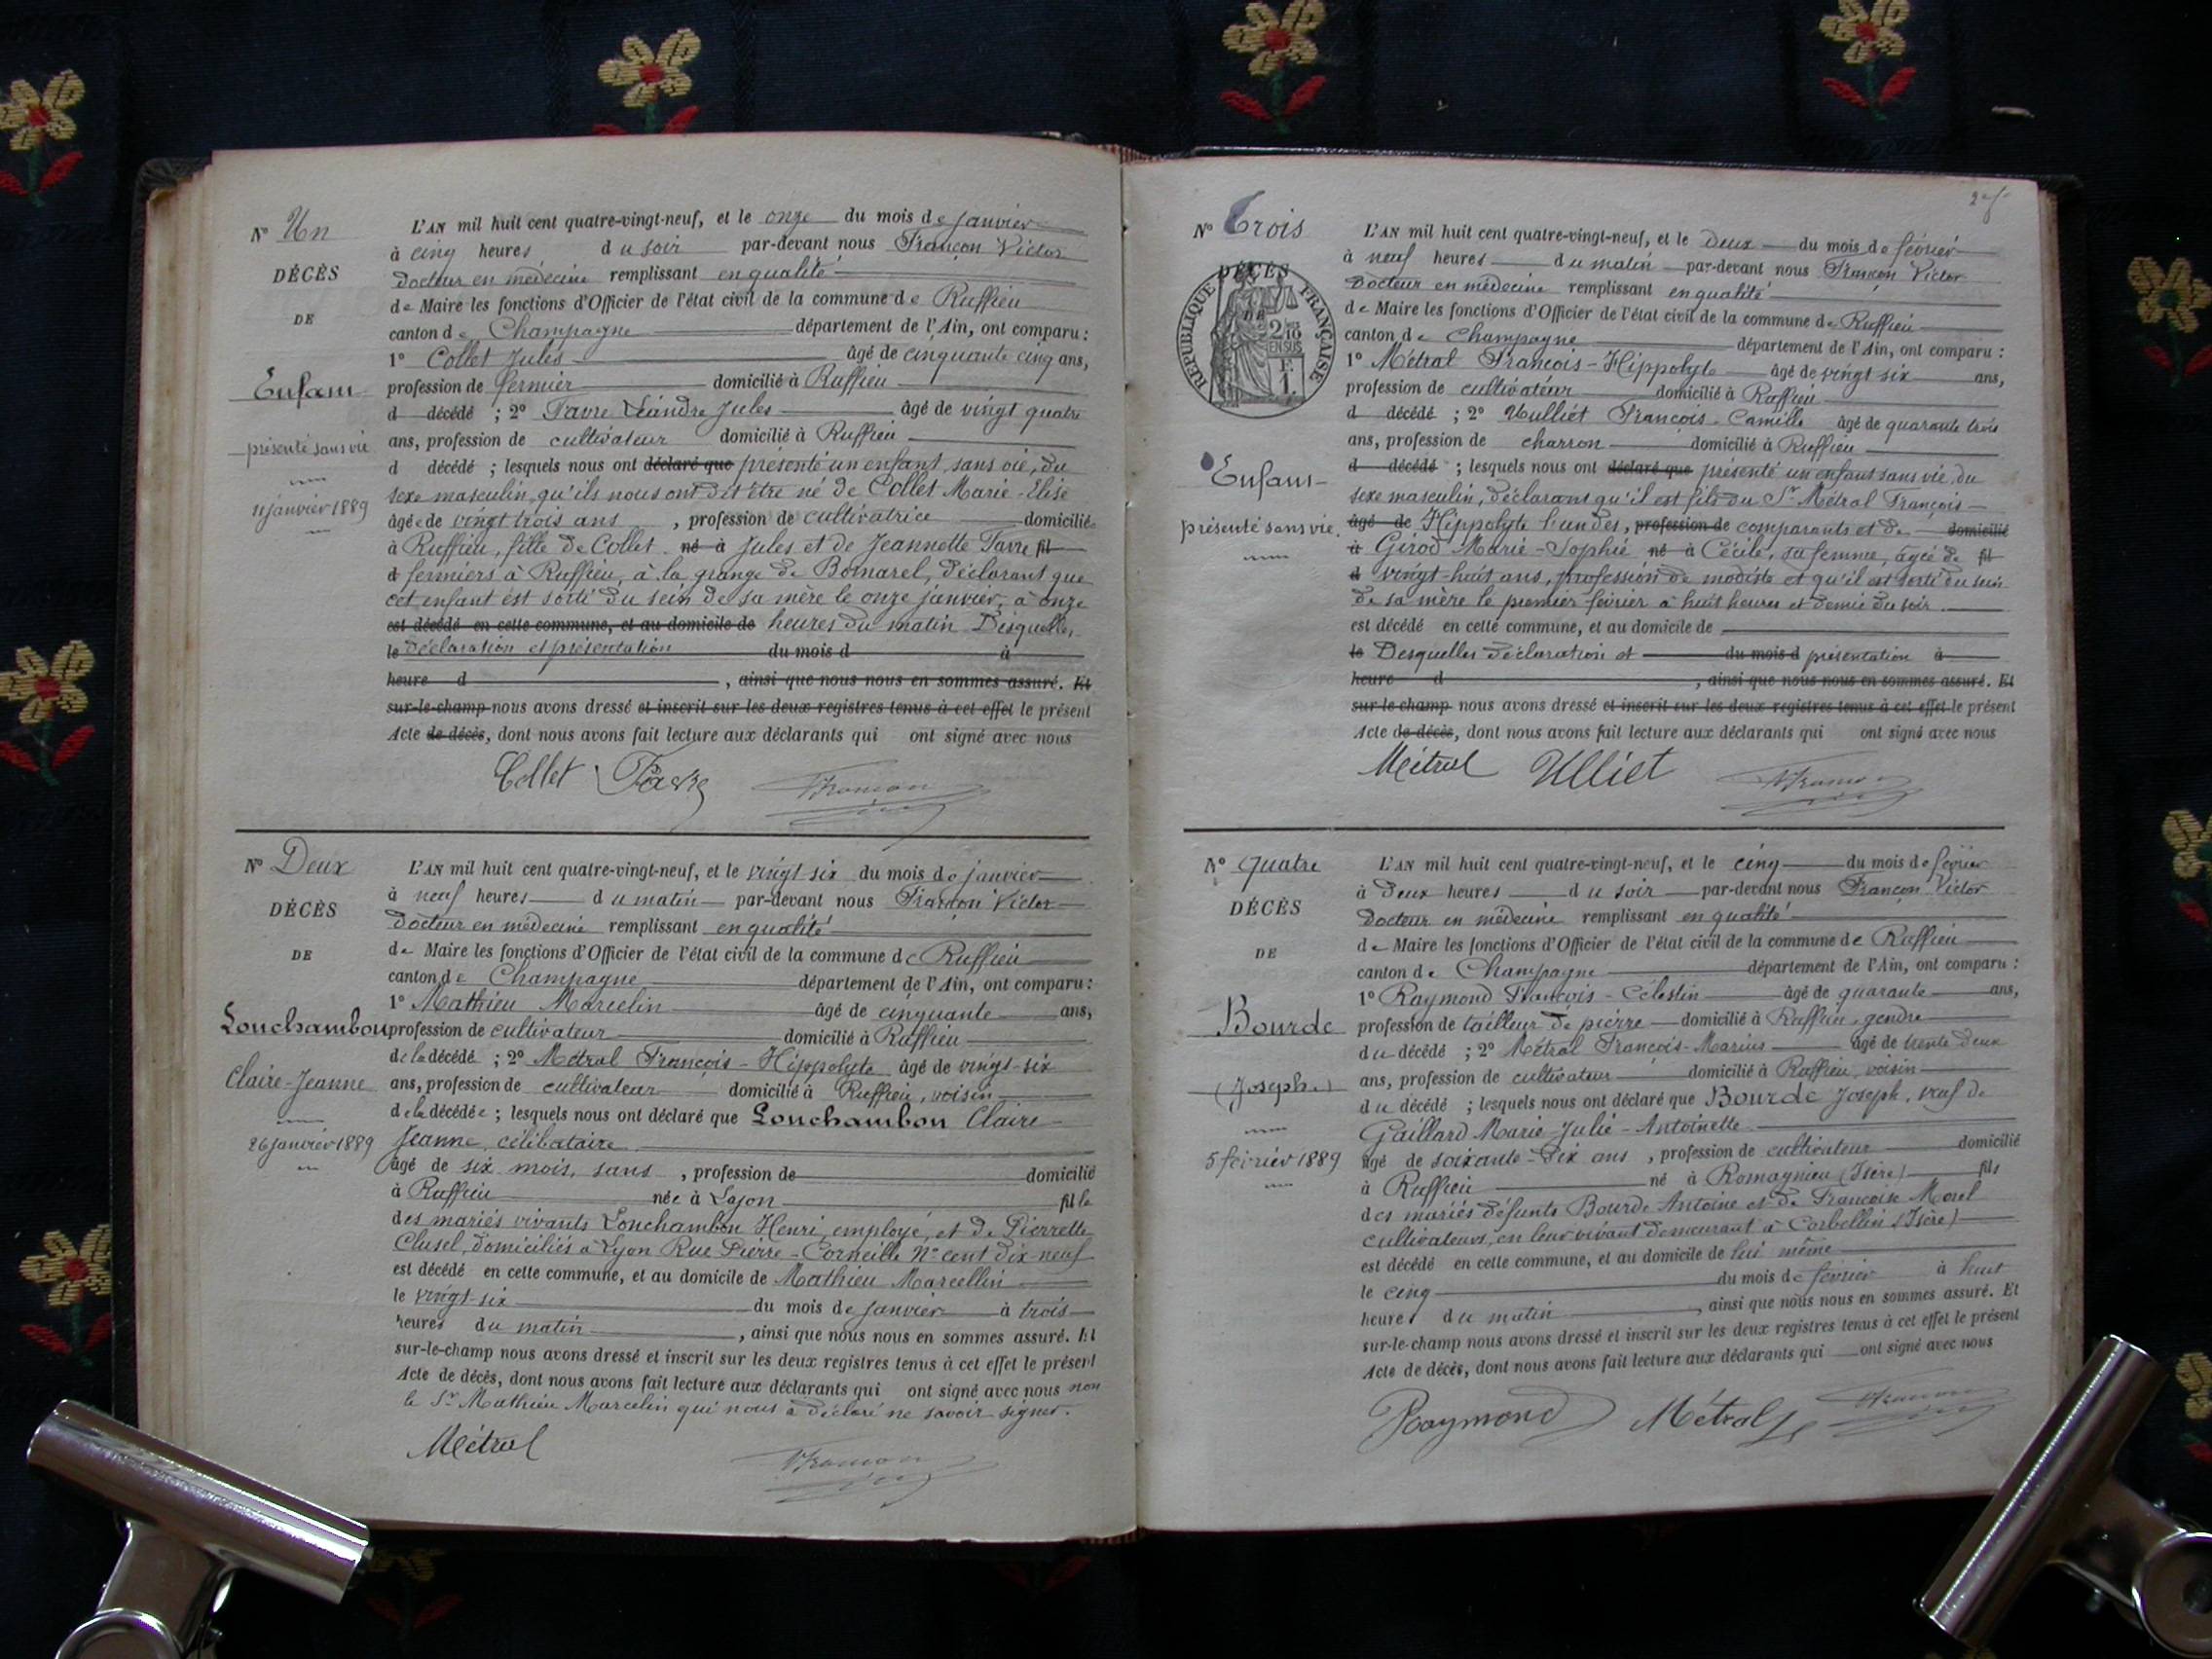 N° Un
DÉCÈS
DE
Enfant
présenté sans vie
11 janvier 1889
L'AN mil huit cent quatre-vingt-neuf, et le onze du mois de janvier
à cinq heures du soir par-devant nous Françon Victor
Docteur en médecine remplissant en qualité
de Maire les fonctions d'Officier de l'état civil de la commune de Ruffieu
canton de Champagne département de l'Ain, ont comparu :
1° Collet Jules âgé de cinquante cinq ans,
profession de fermier domicilié à Ruffieu
d décédé ; 2° Favre Léandre Jules âgé de vingt quatre
ans, profession de cultivateur domicilié à Ruffieu
d décédé ; lesquels nous ont déclaré que présenté un enfant sans vie, du
sexe masculin, qu'ils nous ont dit être né de Collet Marie-Elise
âgée de vingt trois ans, profession de cultivatrice domiciliée
à Ruffieu, fille de Collet né à Jules et de Jeannette Favre fil
d fermiers à Ruffieu, à la grange de Bomarel, déclarant que
cet enfant est sorti du sein de sa mère le onze janvier, à onze
est décédé en cette commune, et au domicile de heures du matin Desquelles
le déclaration et présentation du mois d à
heure d , ainsi que nous nous en sommes assuré. Et
sur-le-champ nous avons dressé et inscrit sur les deux registres tenus à cet effet le présent
Acte de décès, dont nous avons fait lecture aux déclarants qui ont signé avec nous
Collet Favre VFrançon
N° Deux
DÉCÈS
DE
Lonchambon
Claire-Jeanne
26 janvier 1889
L'AN mil huit cent quatre-vingt-neuf, et le vingt six du mois de janvier
à neuf heures du matin par-devant nous Françon Victor
Docteur en médecine remplissant en qualité
de Maire les fonctions d'Officier de l'état civil de la commune de Ruffieu
canton de Champagne département de l'Ain, ont comparu :
1° Mathieu Marcelin âgé de cinquante ans,
profession de cultivateur domicilié à Ruffieu
de la décédé ; 2° Métral François-Hippolyte âgé de vingt-six
ans, profession de cultivateur domicilié à Ruffieu, voisin
de la décédée ; lesquels nous ont déclaré que Lonchambon Claire
Jeanne, célibataire
âgé de six mois, sans , profession de domicilié
à Ruffieu née à Lyon fille
des mariés vivants Lonchambon Henri, employé, et de Pierrette
Clusel, domiciliés à Lyon Rue Pierre-Corneille N° cent dix neuf
est décédé en cette commune, et au domicile de Mathieu Marcellin
le vingt-six du mois de janvier à trois
heures du matin , ainsi que nous nous en sommes assuré. Et
sur-le-champ nous avons dressé et inscrit sur les deux registres tenus à cet effet le présent
Acte de décès, dont nous avons fait lecture aux déclarants qui ont signé avec nous non
le Sr Mathieu Marcelin qui nous a déclaré ne savoir signer.
Métral VFrançon
N° Trois
DÉCÈS
DE
RÉPUBLIQUE FRANÇAISE
2/10 EN SUS
F. 1.
Enfant
présenté sans vie.
L'AN mil huit cent quatre-vingt-neuf, et le deux du mois de février
à neuf heures du matin par-devant nous Françon Victor
Docteur en médecine remplissant en qualité
de Maire les fonctions d'Officier de l'état civil de la commune de Ruffieu
canton de Champagne département de l'Ain, ont comparu :
1° Métral François-Hippolyte âgé de vingt six ans,
profession de cultivateur domicilié à Ruffieu
d décédé ; 2° Hulliet François-Camille âgé de quarante trois
ans, profession de charron domicilié à Ruffieu
d décédé ; lesquels nous ont déclaré que présenté un enfant sans vie, du
sexe masculin, déclarant qu'il est fils du Sr Métral François-
âgé de Hippolyte l'un des, profession de comparants et de domicilié
à Girod Marie-Sophie né à Cécile, sa femme, âgée de fil
d vingt-huit ans, profession de modiste et qu'il est sorti du sein
de sa mère le premier février à huit heures et demie du soir.
est décédé en cette commune, et au domicile de
le Desquelles déclaration et du mois d présentation à
heure d , ainsi que nous nous en sommes assuré. Et
sur-le-champ nous avons dressé et inscrit sur les deux registres tenus à cet effet le présent
Acte de décès, dont nous avons fait lecture aux déclarants qui ont signé avec nous
Métral Ulliet VFrançon
N° Quatre
DÉCÈS
DE
Bourde
(Joseph)
5 février 1889
L'AN mil huit cent quatre-vingt-neuf, et le cinq du mois de février
à deux heures du soir par-devant nous Françon Victor
Docteur en médecine remplissant en qualité
de Maire les fonctions d'Officier de l'état civil de la commune de Ruffieu
canton de Champagne département de l'Ain, ont comparu :
1° Raymond François-Célestin âgé de quarante ans,
profession de tailleur de pierre domicilié à Ruffieu, gendre
du décédé ; 2° Métral François-Marius âgé de trente deux
ans, profession de cultivateur domicilié à Ruffieu, voisin
du décédé ; lesquels nous ont déclaré que Bourde Joseph, veuf de
Gaillard Marie-Julie-Antoinette
âgé de soixante-dix ans, profession de cultivateur domicilié
à Ruffieu né à Romagnieu (Isère) fils
des mariés défunts Bourde Antoine et de Françoise Morel
cultivateurs, en leur vivant demeurant à Corbellin (Isère)
est décédé en cette commune, et au domicile de lui même
le cinq du mois de février à huit
heures du matin , ainsi que nous nous en sommes assuré. Et
sur-le-champ nous avons dressé et inscrit sur les deux registres tenus à cet effet le présent
Acte de décès, dont nous avons fait lecture aux déclarants qui ont signé avec nous
Raymond Métral VFrançon